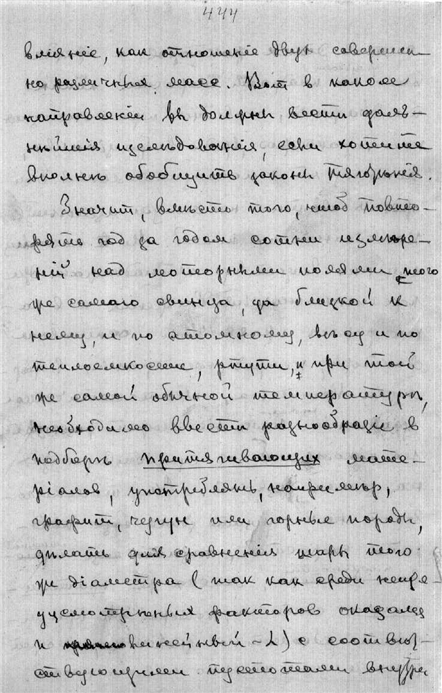 444
вліяніе, как отношеніе двух совершен-
но различных масс. Вот в каком
направленіи вы должны вести даль-
нѣйшія изслѣдованія, если хотите
вполнѣ обобщить законы тяготѣнія.
Значит, вмѣсто того, чтоб повто-
рять год за годом сотни измѣре-
ній над моторными полями того
же самого свинца, да близкой к
нему, и по атомному вѣсу и по
теплоемкости, ртути, и при той
же самой обычной температурѣ,
необходимо ввести разнообразіе в
подборѣ притягивающих мате-
ріалов, употреблять, напримѣр,
графит, чугун или горные породы,
дѣлать для сравненія шары того
же діаметра (так как среди непре
дусмотрѣнных факторов оказался
и линейный - L) с соотвѣт-
ствующими пустотами внутри